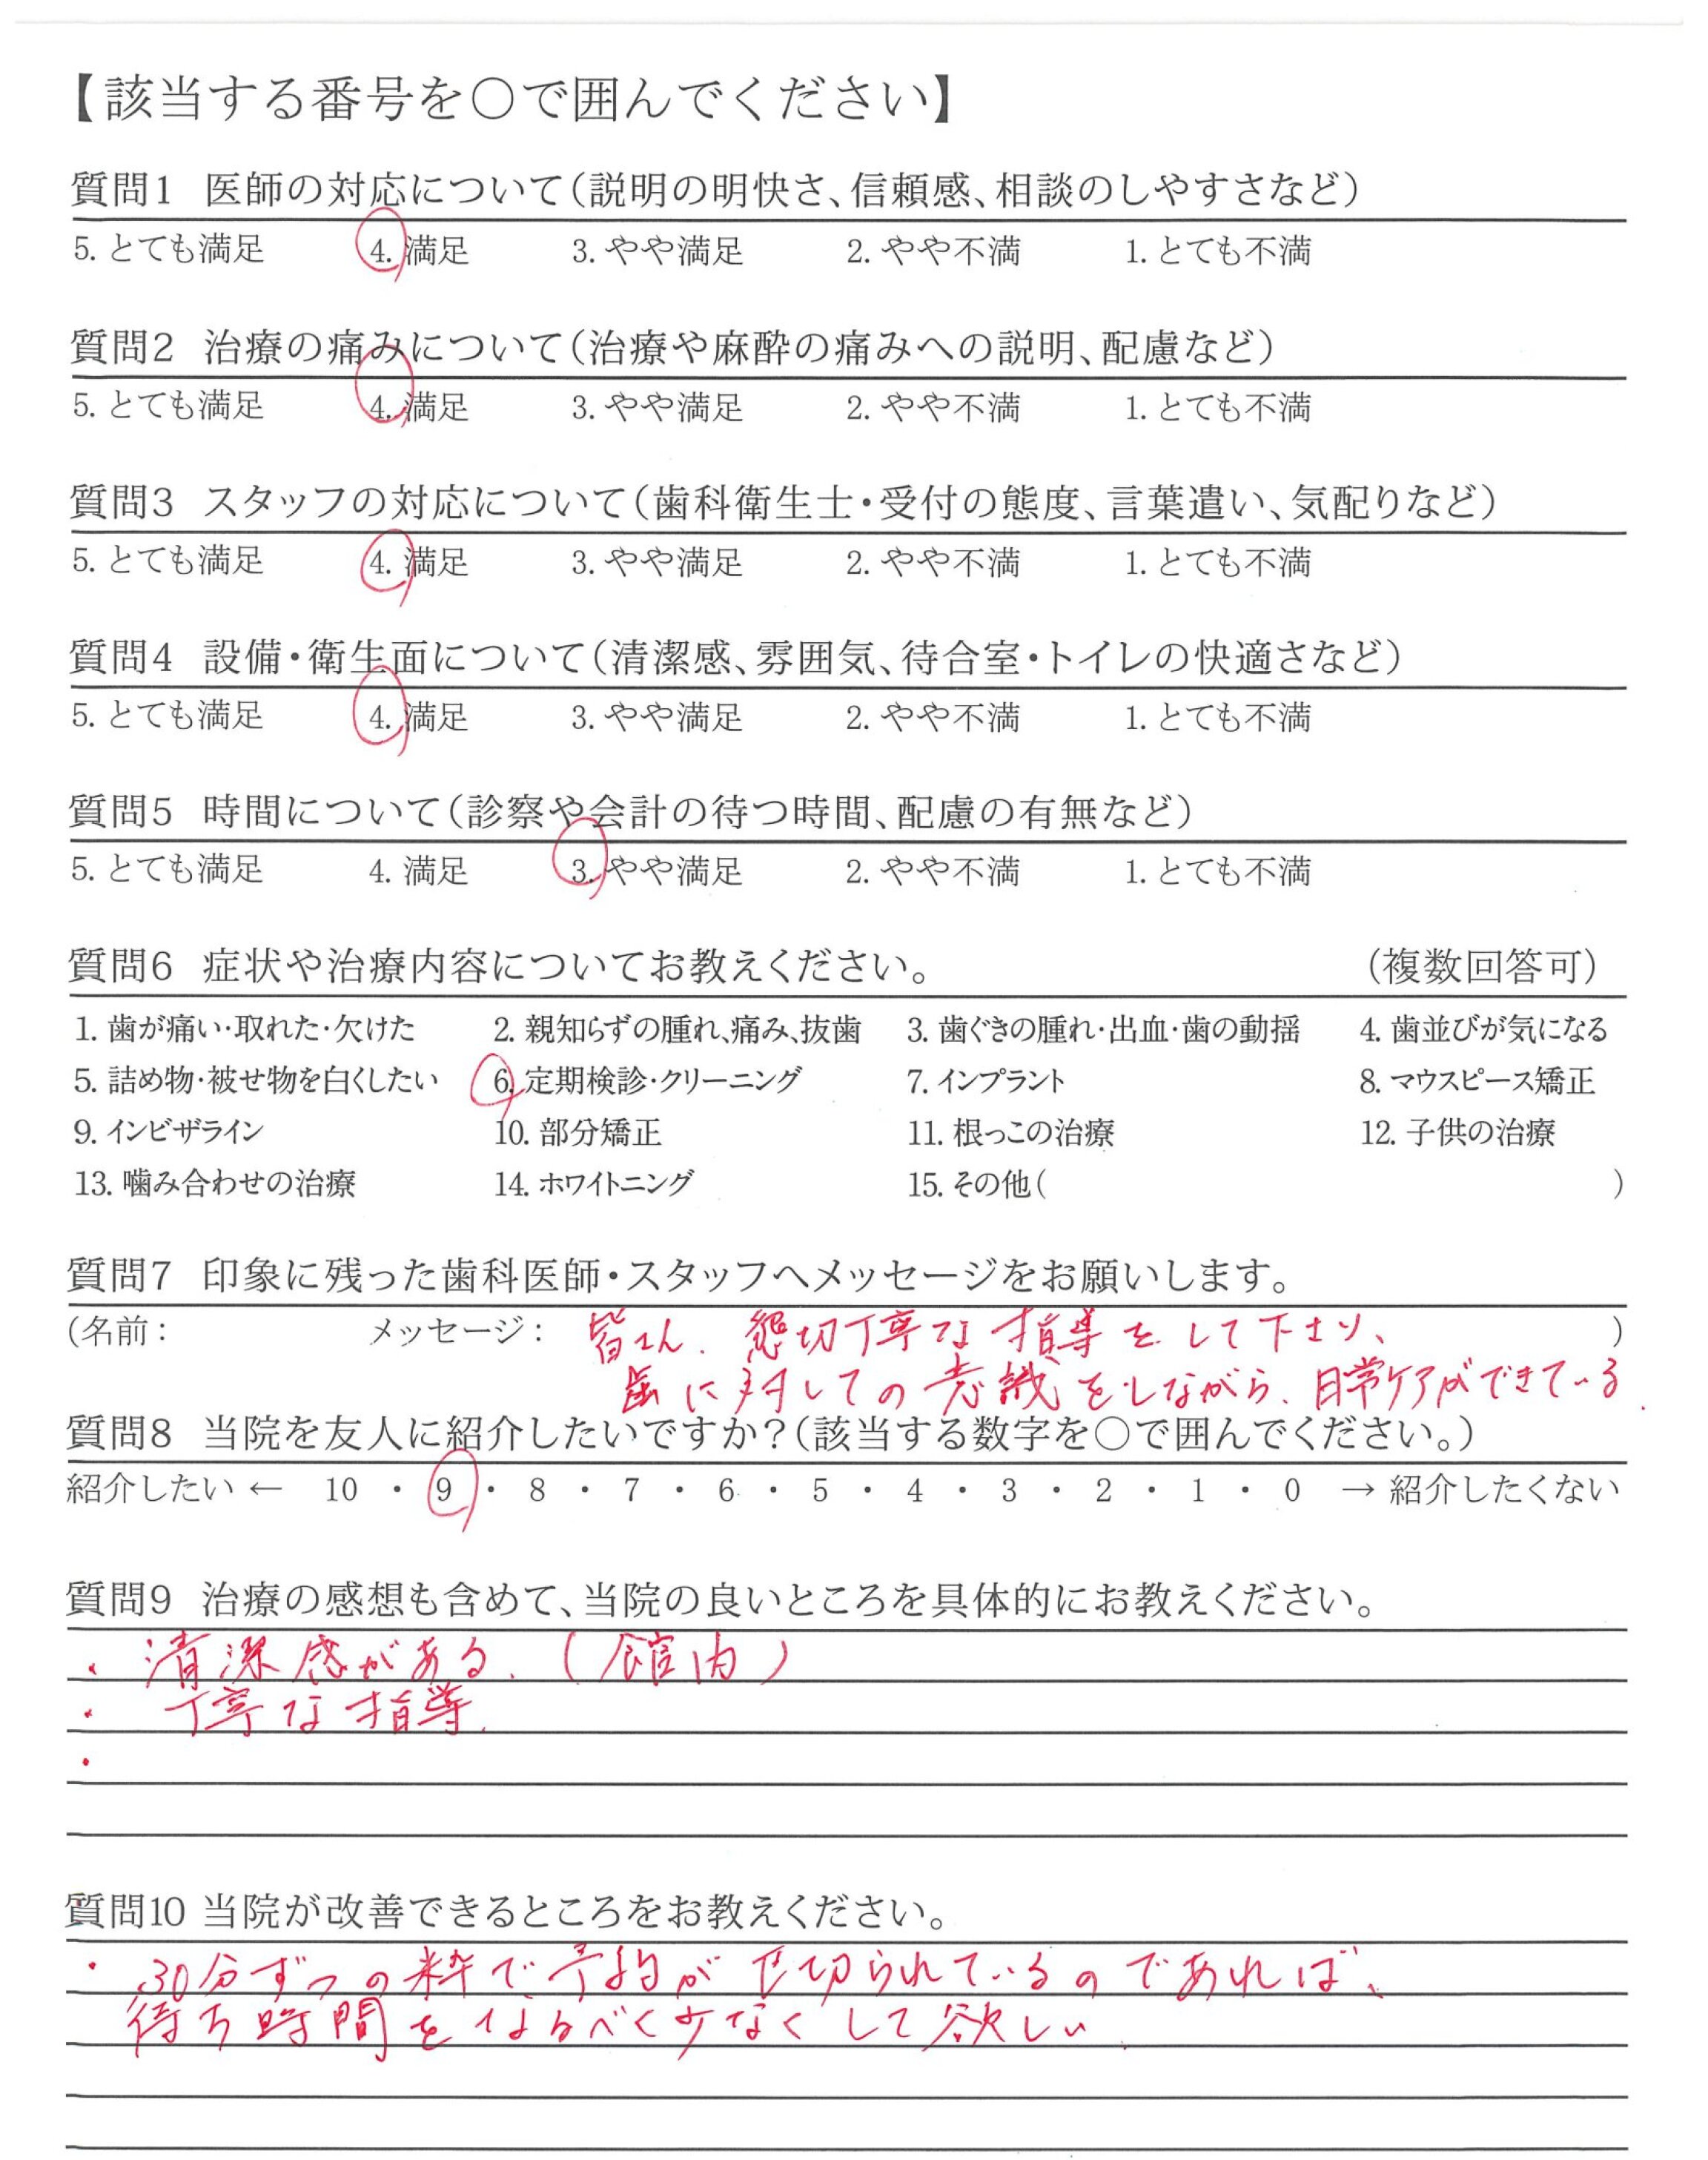 【該当する番号を〇で囲んでください】
質問1 医師の対応について(説明の明快さ、信頼感、相談のしやすさなど)
5. とても満足 4. 満足 3. やや満足 2. やや不満 1. とても不満
質問2 治療の痛みについて(治療や麻酔の痛みへの説明、配慮など)
5. とても満足 4. 満足 3. やや満足 2. やや不満 1. とても不満
質問3 スタッフの対応について(歯科衛生士・受付の態度、言葉遣い、気配りなど)
5. とても満足 4. 満足 3. やや満足 2. やや不満 1. とても不満
質問4 設備・衛生面について(清潔感、雰囲気、待合室・トイレの快適さなど)
5. とても満足 4. 満足 3. やや満足 2. やや不満 1. とても不満
質問5 時間について(診察や会計の待つ時間、配慮の有無など)
5. とても満足 4. 満足 3. やや満足 2. やや不満 1. とても不満
質問6 症状や治療内容についてお教えください。 (複数回答可)
1. 歯が痛い・取れた・欠けた 2. 親知らずの腫れ、痛み、抜歯 3. 歯ぐきの腫れ・出血・歯の動揺 4. 歯並びが気になる
5. 詰め物・被せ物を白くしたい 6. 定期検診・クリーニング 7. インプラント 8. マウスピース矯正
9. インビザライン 10. 部分矯正 11. 根っこの治療 12. 子供の治療
13. 噛み合わせの治療 14. ホワイトニング 15. その他( )
質問7 印象に残った歯科医師・スタッフへメッセージをお願いします。
(名前: メッセージ: 皆さん、懇切丁寧な指導をして下さり、 )
歯に対しての意識をしながら、日常ケアができている.
質問8 当院を友人に紹介したいですか?(該当する数字を〇で囲んでください。)
紹介したい ← 10 ・ 9 ・ 8 ・ 7 ・ 6 ・ 5 ・ 4 ・ 3 ・ 2 ・ 1 ・ 0 → 紹介したくない
質問9 治療の感想も含めて、当院の良いところを具体的にお教えください。
・ 清潔感がある. (館内)
・ 丁寧な指導.
・
質問10 当院が改善できるところをお教えください。
・ 30分ずつの枠で予約が仕切られているのであれば、
待ち時間をなるべく少なくして欲しい.